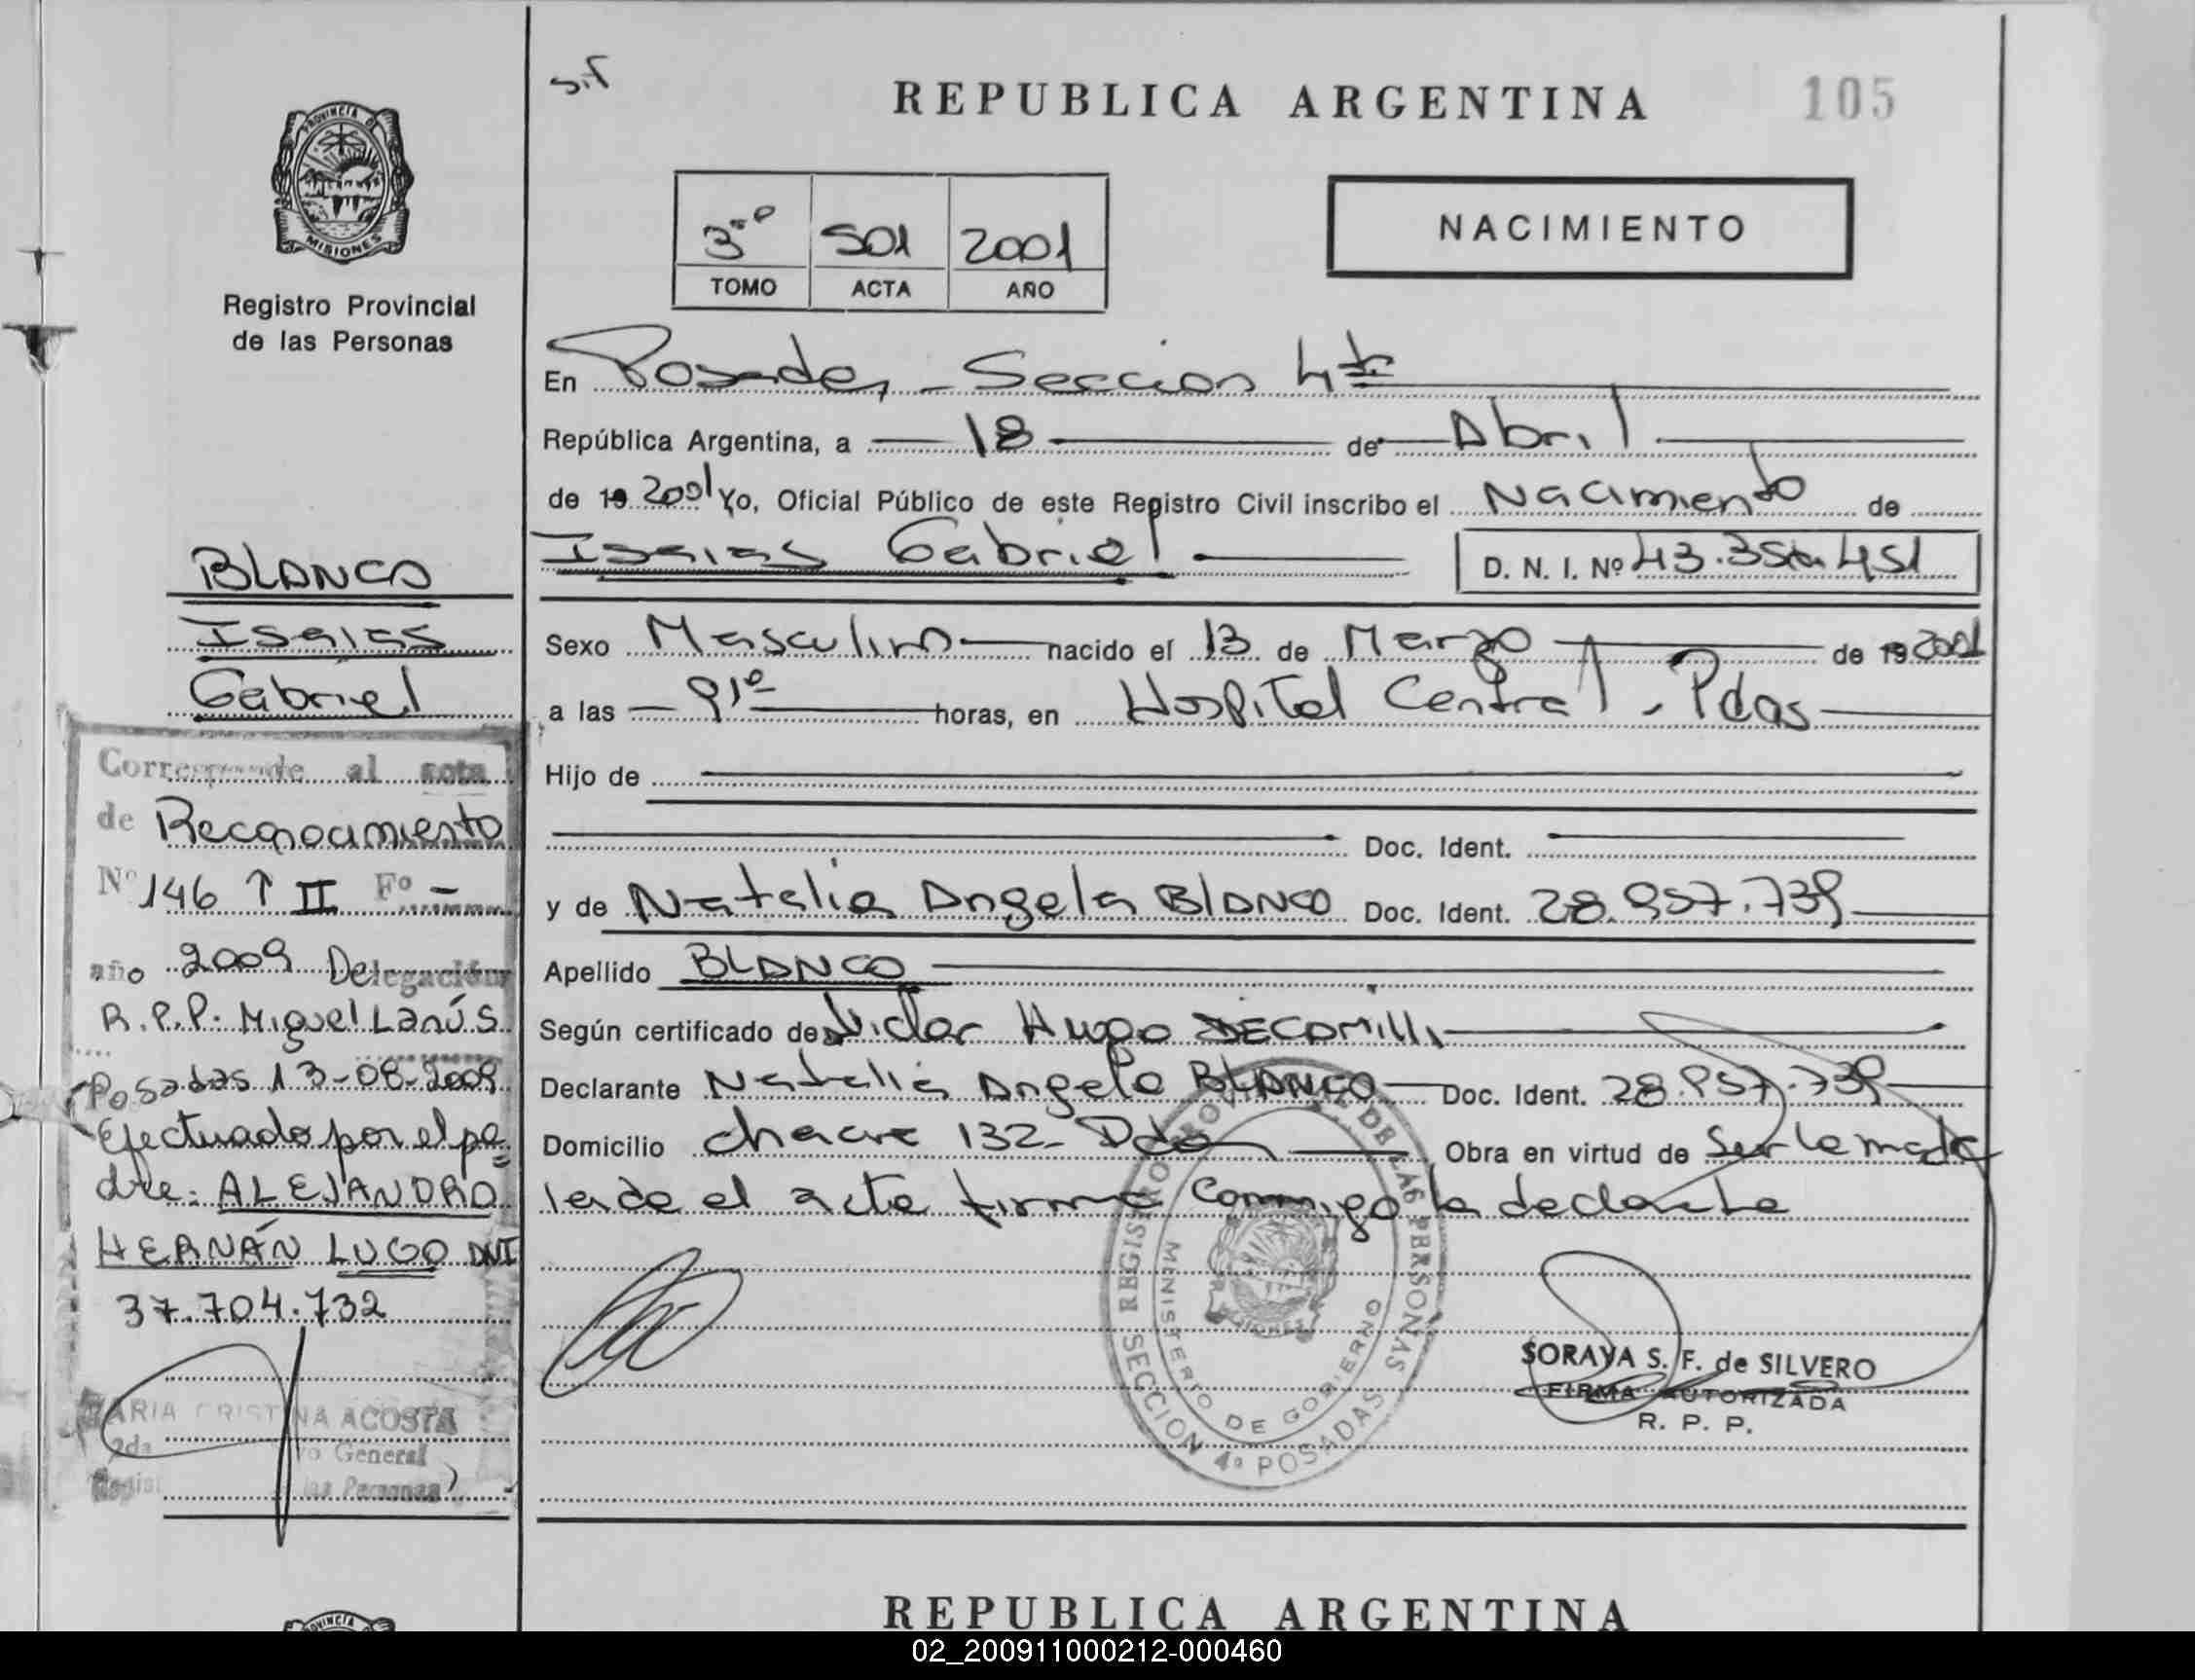 s.f
REPUBLICA ARGENTINA
105
PROVINCIA DE
MISIONES
Registro Provincial
de las Personas
501 2001
TOMO ACTA AÑO
NACIMIENTO
En Posadas, - Seccion 4ta
República Argentina, a 18 de Abril
de 19 2001 Yo, Oficial Público de este Registro Civil inscribo el Nacimiento de
Isaias Gabriel D. N. I. Nº 43.354.451
Sexo Masculino nacido el 13 de Marzo de 19 2001
a las horas, en Hospital Central - Pdas
Hijo de
Doc. Ident.
y de Natalia Angela BLANCO Doc. Ident. 28.957.739
Apellido BLANCO
Según certificado de Victor Hugo
Declarante Natalia Angela BLANCO Doc. Ident. 28.957.739
Domicilio chacra 132- Pdas Obra en virtud de Ser la madre
leida el acta firma conmigo la declarante
BLANCO
Isaias
Gabriel
Corresponde al acta
de Reconocimiento
Nº 146 T II Fº -
año 2009 Delegación
R.P.P. Miguel Lanús
Posadas 13-08-2009
Efectuado por el pa
dre: ALEJANDRO
HERNÁN LUGO DNI
37.704.732
MARIA CRISTINA ACOSTA
2da General
Regist las Personas
REGISTRO PROVINCIAL DE LAS PERSONAS
MINISTERIO DE GOBIERNO
SECCION 4ª POSADAS
SORAYA S. F. de SILVERO
FIRMA AUTORIZADA
R. P. P.
REPUBLICA ARGENTINA
02_200911000212-000460